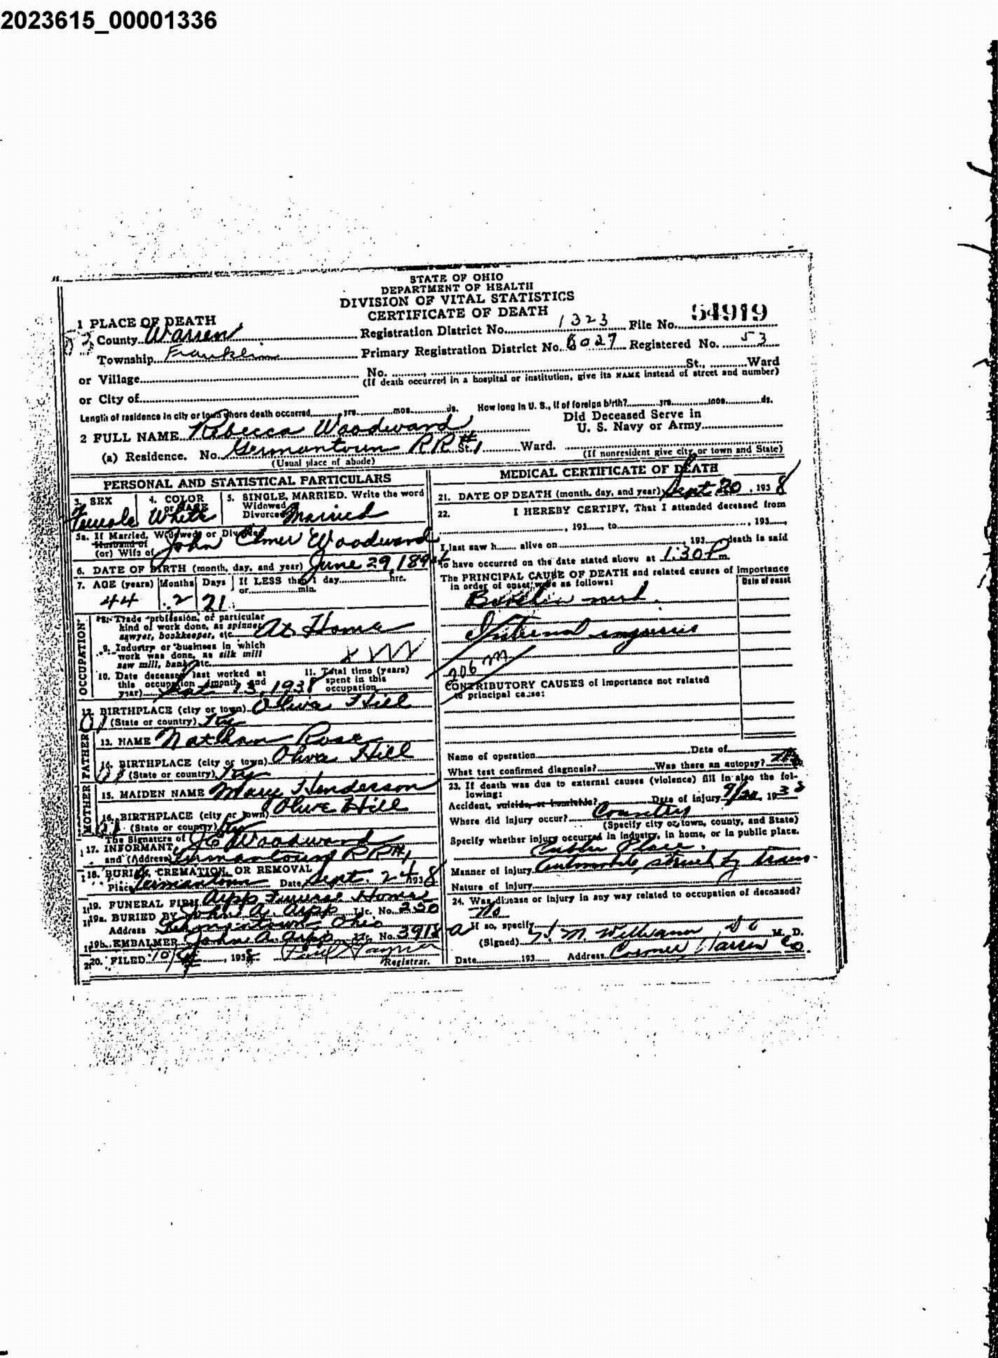 2023615_00001336
STATE OF OHIO
DEPARTMENT OF HEALTH
DIVISION OF VITAL STATISTICS
CERTIFICATE OF DEATH
1 PLACE OF DEATH
County Warren Registration District No. 1323 File No. 54919
Township Franklin Primary Registration District No. 6027 Registered No. 53
or Village No. St., Ward
(If death occurred in a hospital or institution, give its NAME instead of street and number)
or City of
Length of residence in city or town where death occurred yrs. mos. ds. How long in U. S., if of foreign birth? yrs. mos. ds.
2 FULL NAME Rebecca Woodward Did Deceased Serve in U. S. Navy or Army
(a) Residence. No. Germantown RR#1 St., Ward.
(Usual place of abode) (If nonresident give city or town and State)
PERSONAL AND STATISTICAL PARTICULARS
3. SEX Female 4. COLOR or RACE White 5. SINGLE, MARRIED. Write the word Widowed Divorced Married
5a. If Married, Widowed or Divorced
Husband of
(or) Wife of John Elmer Woodward
6. DATE OF BIRTH (month, day, and year) June 29, 1894
7. AGE (years) Months Days If LESS than 1 day hrs.
or min.
44 2 21
OCCUPATION
8. Trade, profession, or particular
kind of work done, as spinner
sawyer, bookkeeper, etc. At Home
9. Industry or business in which
work was done, as silk mill
saw mill, bank, etc.
10. Date deceased last worked at
this occupation (month and
year) 1938
11. Total time (years)
spent in this
occupation
12. BIRTHPLACE (city or town) Olive Hill
(State or country) Ky
FATHER
13. NAME Nathan Rose
14. BIRTHPLACE (city or town) Olive Hill
(State or country) Ky
MOTHER
15. MAIDEN NAME Mary Henderson
16. BIRTHPLACE (city or town) Olive Hill
(State or country) Ky
The Signature of
17. INFORMANT J E Woodward
and (Address) Germantown RR#1
18. BURIAL, CREMATION, OR REMOVAL
Place Germantown Date Sept. 24 1938
19. FUNERAL FIRM Arpp Funeral Home
19a. BURIED BY John A. Arpp Lic. No. 250
Address Germantown Ohio
19b. EMBALMER John A. Arpp Lic. No. 3918
20. FILED 193 Registrar.
MEDICAL CERTIFICATE OF DEATH
21. DATE OF DEATH (month, day, and year) Sept 20, 1938
22. I HEREBY CERTIFY, That I attended deceased from
, 193 , to , 193
I last saw h alive on , 193 death is said
to have occurred on the date stated above at 1:30 P m.
The PRINCIPAL CAUSE OF DEATH and related causes of importance
in order of onset were as follows: Date of onset
Internal injuries
206 m
CONTRIBUTORY CAUSES of importance not related
to principal cause:
Name of operation Date of
What test confirmed diagnosis? Was there an autopsy? No
23. If death was due to external causes (violence) fill in also the following:
Accident, suicide, or homicide? Date of injury 9/20, 193
Where did injury occur? Country
(Specify city or town, county, and State)
Specify whether injury occurred in industry, in home, or in public place.
Public Place.
Manner of injury Automobile struck by train.
Nature of injury
24. Was disease or injury in any way related to occupation of deceased?
No
If so, specify
(Signed) M. D.
Date 193 Address Coroner Warren Co.